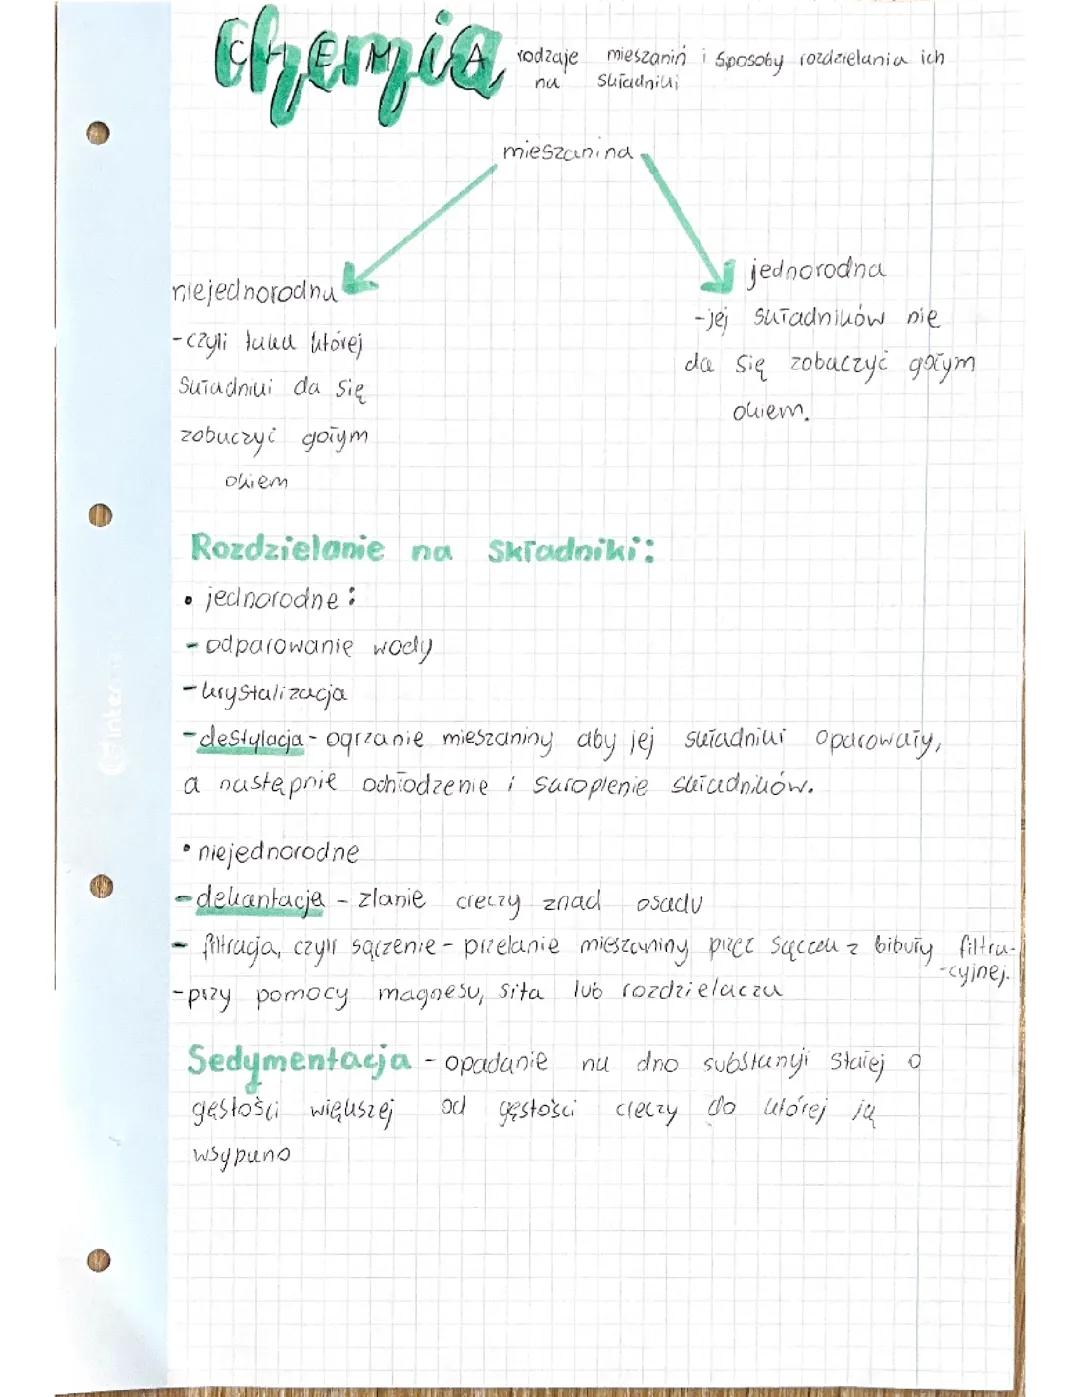 Chemia
CHEMIA
rodzaje mieszanin i sposoby rozdzielania ich
na składniki
mieszanina
niejednorodna
- czyli taka której
składniki da się
zobaczyć gołym
okiem
jednorodna
- jej składników nie
da się zobaczyć gołym
okiem.
Rozdzielanie na składniki:
• jednorodne:
- odparowanie wody
- krystalizacja
- destylacja - ogrzanie mieszaniny aby jej składniki oparowały,
a następnie ochłodzenie i skroplenie składników.
• niejednorodne
- dekantacja - zlanie cieczy znad osadu
- filtracja, czyli sączenie - przelanie mieszaniny przez sączek z bibuły filtra-
-cyjnej.
- przy pomocy magnesu, sita lub rozdzielacza
Sedymentacja - opadanie na dno substanyji stałej o
gęstości większej od gęstości cieczy do której ją
wsypano